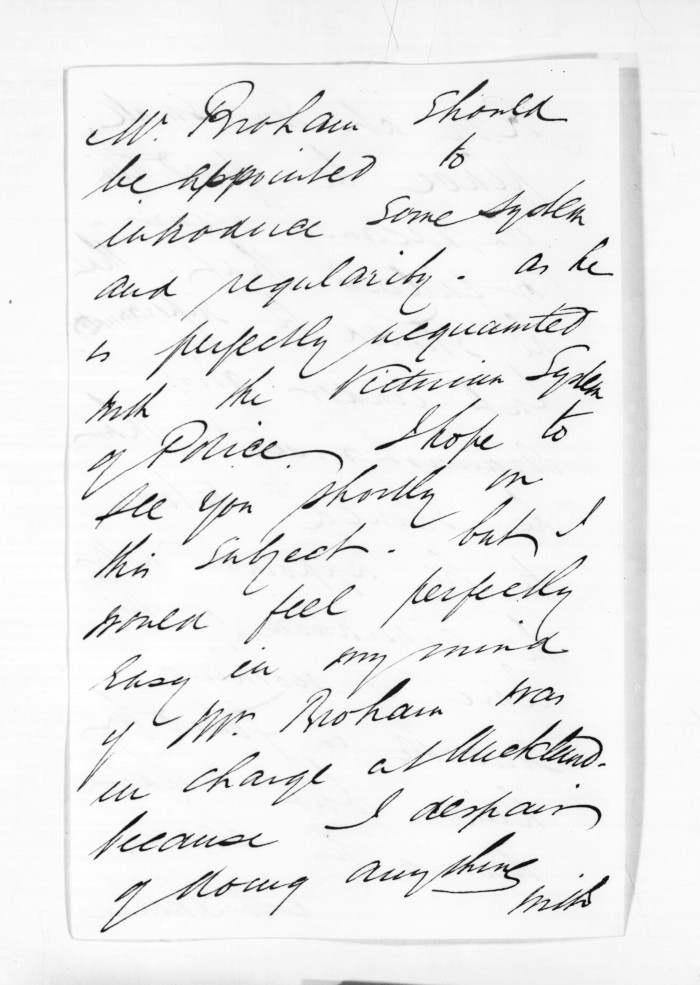 Mr. Broham should
be appointed to
introduce some system
and regularity. as he
is perfectly acquainted
with the Victorian System
of Police. I hope to
see you shortly on
this subject. but I
would feel perfectly
easy in my mind
if Mr. Broham was
in charge at Auckland.
because I despair
of doing anything
with